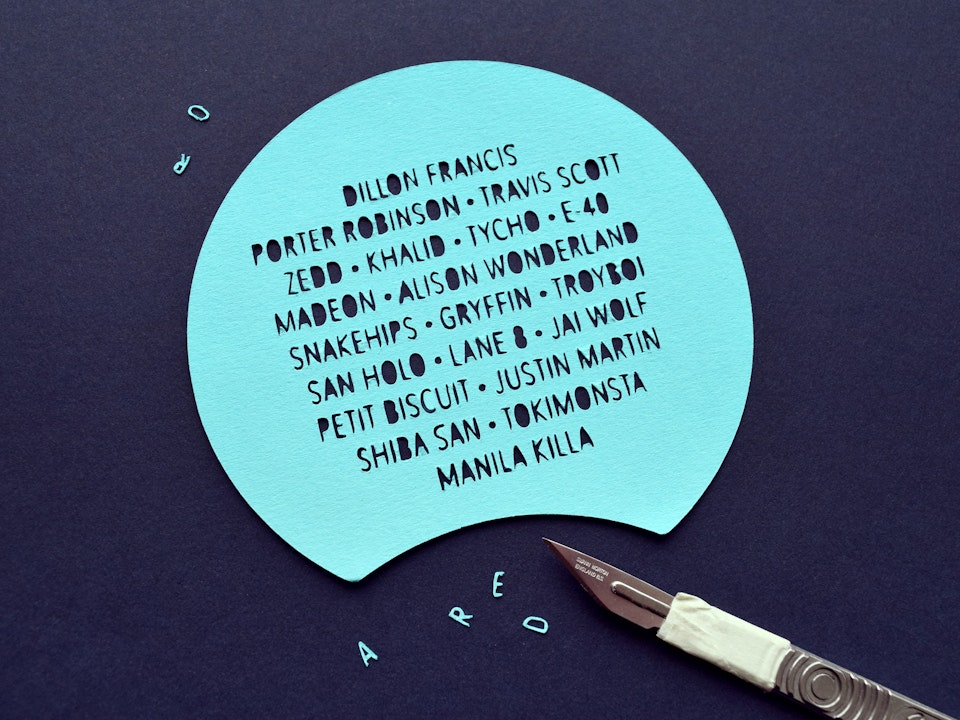 DILLON FRANCIS
PORTER ROBINSON • TRAVIS SCOTT
ZEDD • KHALID • TYCHO • E-40
MADEON • ALISON WONDERLAND
SNAKEHIPS • GRYFFIN • TROYBOI
SAN HOLO • LANE 8 • JAI WOLF
PETIT BISCUIT • JUSTIN MARTIN
SHIBA SAN • TOKIMONSTA
MANILA KILLA
O
R
E
R
D
A
SWANN MORTON
ENGLAND B.S